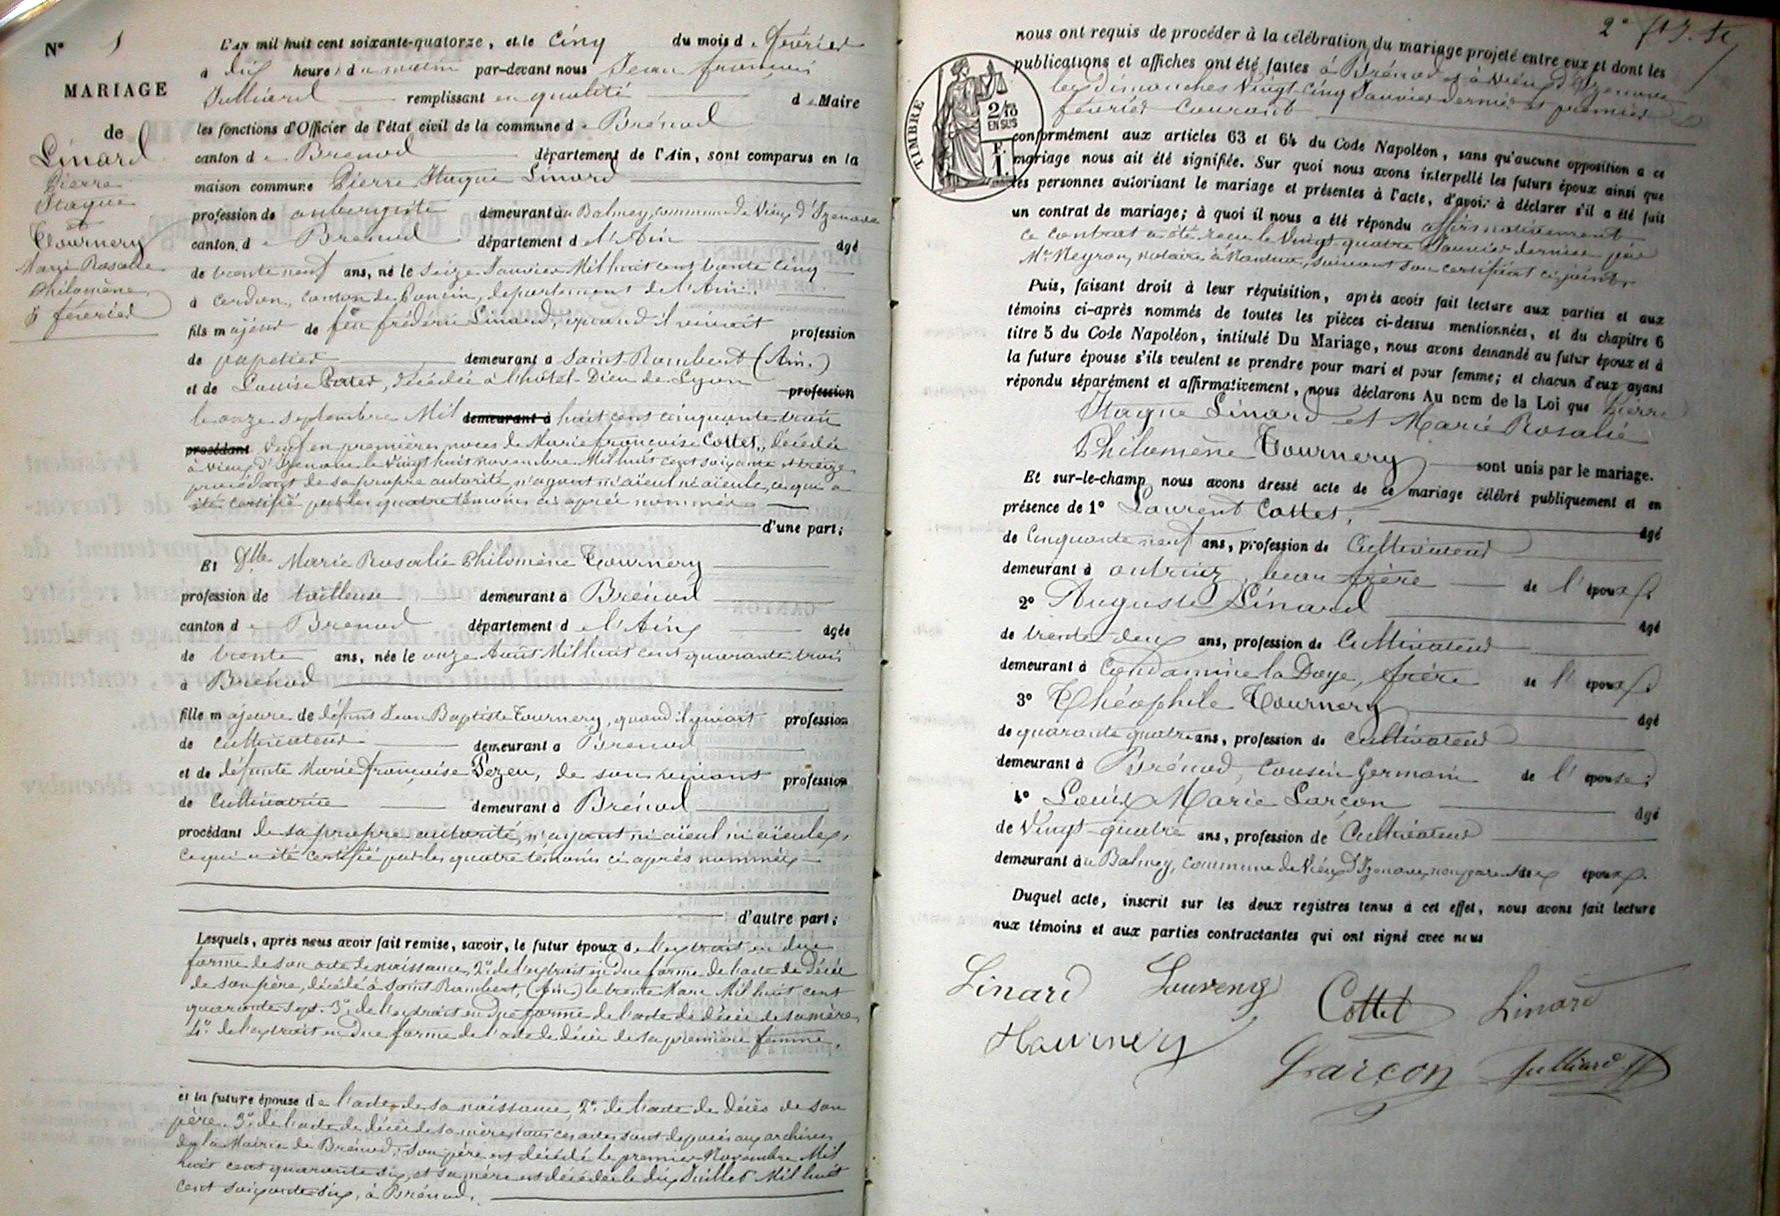 N° 1
MARIAGE
de
Linard
Pierre
Hague
et
Tournery
Marie Rosalie
Philomène
5 février
L'AN mil huit cent soixante-quatorze, et le Cinq du mois de février
à dix heures du matin par-devant nous Jean françois
Julliard remplissant en qualité de Maire
les fonctions d'Officier de l'état civil de la commune de Brénod
canton de Brénod département de l'Ain, sont comparus en la
maison commune Pierre Hague Linard
profession de aubergiste demeurant au Balmey, commune de Vieu d'Izenave
canton de Brénod département de l'Ain âgé
de trente neuf ans, né le Seize Janvier Mil huit cent trente cinq
à Cerdon, canton de Poncin, département de l'Ain.
fils majeur de feu frédéric Linard, quand il vivait profession
de papetier demeurant à Saint Rambert (Ain.)
et de Louise Cottet, décédée à l'hôtel-Dieu de Lyon profession
le onze septembre Mil demeurant à huit cent cinquante trois
procédant Veuf en premières noces de Marie françoise Cottet, décédée
à Vieu d'Izenave le Vingt huit novembre Mil huit cent soixante et treize
procédant de sa propre autorité, n'ayant ni aïeul ni aïeule, ce qui a
été certifié par les quatre témoins ci après nommés
d'une part;
Et Dlle Marie Rosalie Philomène Tournery
profession de tailleuse demeurant à Brénod
canton de Brénod département de l'Ain âgée
de trente ans, née le onze Août Mil huit cent quarante trois
à Brénod
fille majeure de défunt Jean Baptiste Tournery, quand il vivait profession
de Cultivateur demeurant à Brénod
et de défunte Marie françoise Pezeu, de son vivant profession
de Cultivatrice demeurant à Brénod
procédant de sa propre autorité, n'ayant ni aïeul ni aïeule,
ce qui a été certifié par les quatre témoins ci après nommés
d'autre part;
Lesquels, après nous avoir fait remise, savoir, le futur époux de l'extrait en due
forme de son acte de naissance, 2° de l'extrait en due forme de l'acte de décès
de son père, décédé à Saint Rambert, (Ain) le trente Mars Mil huit cent
quarante sept. 3° de l'extrait en due forme de l'acte de décès de sa mère,
4° de l'extrait en due forme de l'acte de décès de sa première femme.
et la future épouse de l'acte de sa naissance, 2° de l'acte de décès de son
père. 3° de l'acte de décès de sa mère, tous ces actes sont déposés aux archives
de la Mairie de Brénod; son père est décédé le premier Novembre Mil
huit cent quarante six, et sa mère est décédée le dix Juillet Mil huit
cent soixante six, à Brénod.
2°
TIMBRE
2/10
EN SUS
F.
1.
nous ont requis de procéder à la célébration du mariage projeté entre eux et dont les
publications et affiches ont été faites à Brénod et à Vieu d'Izenave
les dimanches Vingt cinq Janvier dernier et premier
février courant
conformément aux articles 63 et 64 du Code Napoléon, sans qu'aucune opposition à ce
mariage nous ait été signifiée. Sur quoi nous avons interpellé les futurs époux ainsi que
les personnes autorisant le mariage et présentes à l'acte, d'avoir à déclarer s'il a été fait
un contrat de mariage; à quoi il nous a été répondu affirmativement
ce contrat a été reçu le Vingt quatre Janvier dernier par
Me Neyron, notaire à Nantua, suivant son certificat ci joint.
Puis, faisant droit à leur réquisition, après avoir fait lecture aux parties et aux
témoins ci-après nommés de toutes les pièces ci-dessus mentionnées, et du chapitre 6
titre 5 du Code Napoléon, intitulé Du Mariage, nous avons demandé au futur époux et à
la future épouse s'ils veulent se prendre pour mari et pour femme; et chacun d'eux ayant
répondu séparément et affirmativement, nous déclarons Au nom de la Loi que Pierre
Hague Linard et Marie Rosalie
Philomène Tournery sont unis par le mariage.
Et sur-le-champ nous avons dressé acte de ce mariage célébré publiquement et en
présence de 1° Laurent Cottet, âgé
de Cinquante neuf ans, profession de Cultivateur
demeurant à beau frère de l'époux
2° Auguste Linard âgé
de trente deux ans, profession de Cultivateur
demeurant à Condamine la Doye, frère de l'époux
3° Théophile Tournery âgé
de quarante quatre ans, profession de Cultivateur
demeurant à Brénod, Cousin Germain de l'épouse;
4° Louis Marie Garçon âgé
de Vingt-quatre ans, profession de Cultivateur
demeurant au Balmey, commune de Vieu d'Izenave, non parent des époux.
Duquel acte, inscrit sur les deux registres tenus à cet effet, nous avons fait lecture
aux témoins et aux parties contractantes qui ont signé avec nous
Linard Cottet Linard
Tournery Garçon Julliard